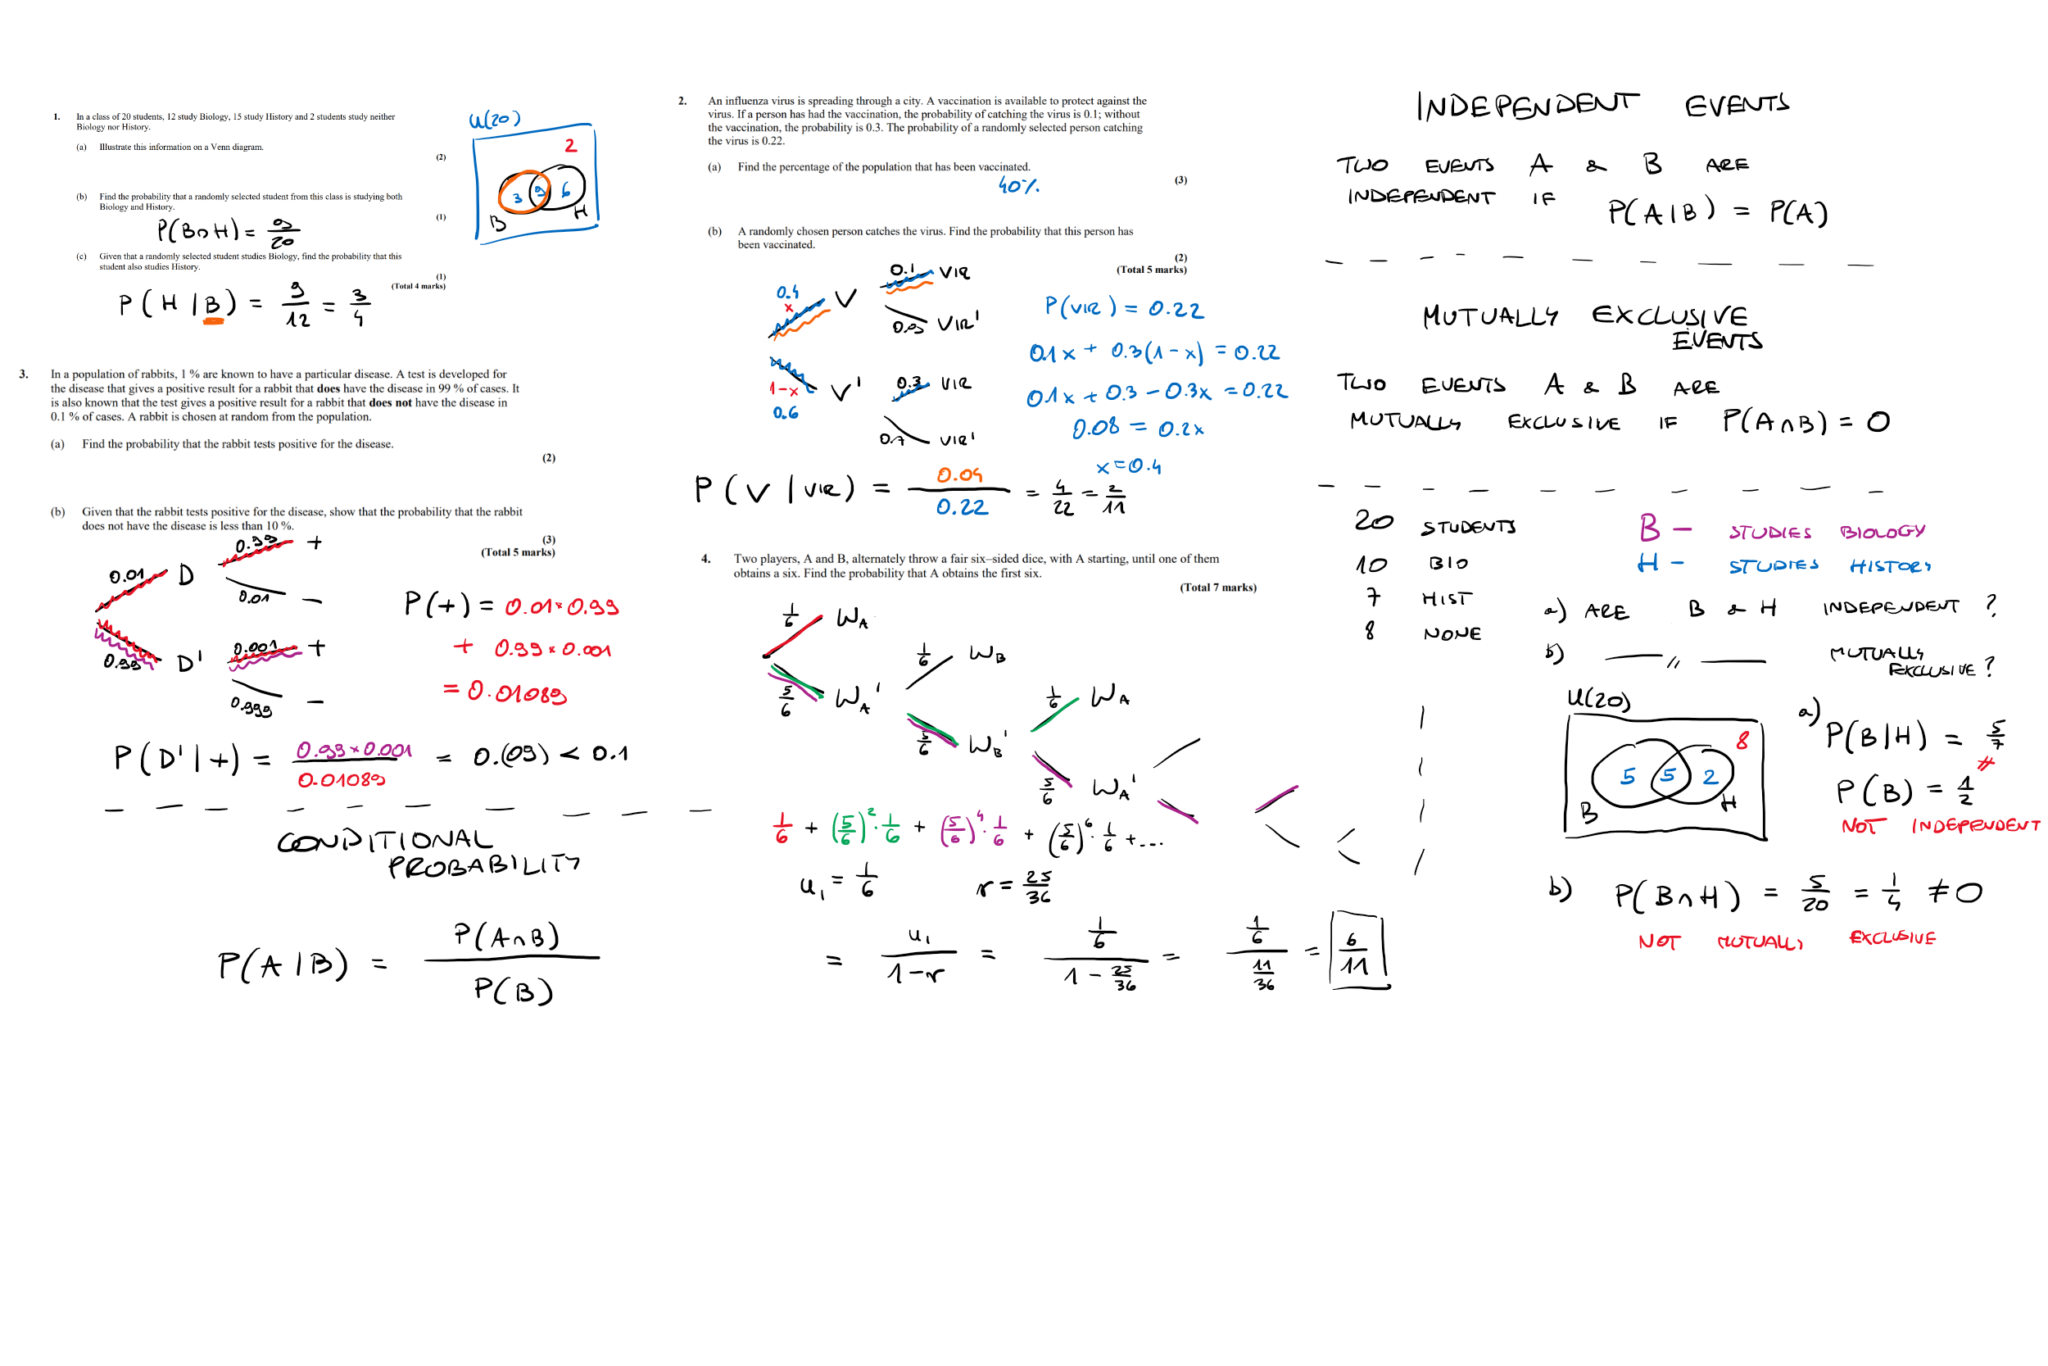 1. In a class of 20 students, 12 study Biology, 15 study History and 2 students study neither
Biology nor History.
(a) Illustrate this information on a Venn diagram.
(2)
(b) Find the probability that a randomly selected student from this class is studying both
Biology and History.
(1)
P(B∩H) = 9/20
(c) Given that a randomly selected student studies Biology, find the probability that this
student also studies History.
(1)
(Total 4 marks)
P(H|B) = 9/12 = 3/4
U(20)
2
3 9 6
B H
3. In a population of rabbits, 1 % are known to have a particular disease. A test is developed for
the disease that gives a positive result for a rabbit that does have the disease in 99 % of cases. It
is also known that the test gives a positive result for a rabbit that does not have the disease in
0.1 % of cases. A rabbit is chosen at random from the population.
(a) Find the probability that the rabbit tests positive for the disease.
(2)
(b) Given that the rabbit tests positive for the disease, show that the probability that the rabbit
does not have the disease is less than 10 %.
(3)
(Total 5 marks)
0.99 +
0.01 D
0.01 −
0.001 +
0.99 D'
0.999 −
P(+) = 0.01×0.99
+ 0.99×0.001
= 0.01089
P(D'|+) = 0.99×0.001/0.01089 = 0.(09) < 0.1
CONDITIONAL
PROBABILITY
P(A|B) = P(A∩B)/P(B)
2. An influenza virus is spreading through a city. A vaccination is available to protect against the
virus. If a person has had the vaccination, the probability of catching the virus is 0.1; without
the vaccination, the probability is 0.3. The probability of a randomly selected person catching
the virus is 0.22.
(a) Find the percentage of the population that has been vaccinated.
40%
(3)
(b) A randomly chosen person catches the virus. Find the probability that this person has
been vaccinated.
(2)
(Total 5 marks)
0.1 VIR
0.4
x V
0.9 VIR'
1-x V'
0.6
0.3 VIR
0.7 VIR'
P(VIR) = 0.22
0.1x + 0.3(1-x) = 0.22
0.1x + 0.3 - 0.3x = 0.22
0.08 = 0.2x
x = 0.4
P(V|VIR) = 0.04/0.22 = 4/22 = 2/11
4. Two players, A and B, alternately throw a fair six–sided dice, with A starting, until one of them
obtains a six. Find the probability that A obtains the first six.
(Total 7 marks)
1/6 WA
5/6 WA'
1/6 WB
5/6 WB'
1/6 WA
5/6 WA'
1/6 + (5/6)²·1/6 + (5/6)⁴·1/6 + (5/6)⁶·1/6 + ...
u₁ = 1/6 r = 25/36
= u₁/(1-r) = (1/6)/(1 - 25/36) = (1/6)/(11/36) = 6/11
INDEPENDENT EVENTS
TWO EVENTS A & B ARE
INDEPENDENT IF P(A|B) = P(A)
MUTUALLY EXCLUSIVE
EVENTS
TWO EVENTS A & B ARE
MUTUALLY EXCLUSIVE IF P(A∩B) = 0
20 STUDENTS
10 BIO
7 HIST
8 NONE
B - STUDIES BIOLOGY
H - STUDIES HISTORY
a) ARE B & H INDEPENDENT ?
b) —— 〃 —— MUTUALLY
EXCLUSIVE ?
U(20)
8
5 5 2
B H
a) P(B|H) = 5/7
≠
P(B) = 1/2
NOT INDEPENDENT
b) P(B∩H) = 5/20 = 1/4 ≠ 0
NOT MUTUALLY EXCLUSIVE